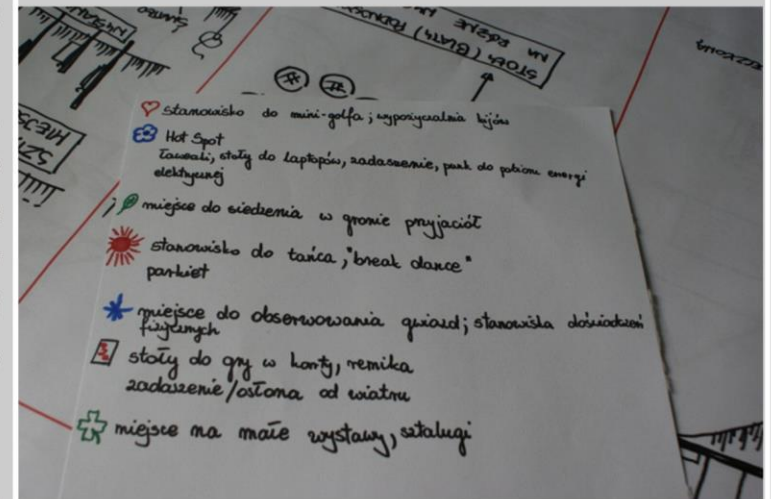 stanowisko do mini-golfa; wypożyczalnia kijów
Hot Spot
ławeczki, stoły do laptopów, zadaszenie, punkt do poboru energi
elektrycznej
miejsce do siedzenia w gronie przyjaciół
stanowisko do tańca, "break dance"
parkiet
miejsce do obserwowania gwiazd; stanowiska doświadczeń
fizycznych
stoły do gry w karty, remika
zadaszenie/osłona od wiatru
miejsce na małe wystawy, sztalugi
STOŁY (BLATY)
NA